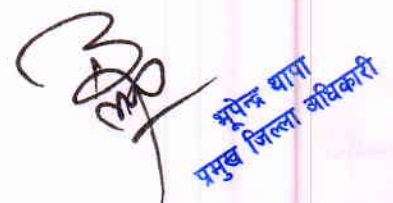 भूपेन्द्र थापा
प्रमुख जिल्ला अधिकारी